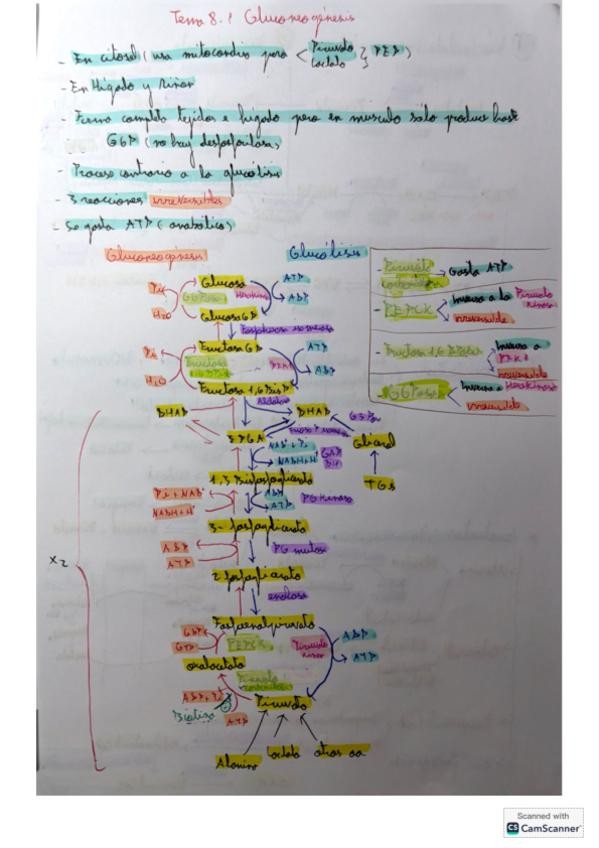 Tema 8.1 Gluconeogénesis
- En citosol (usa mitocondria para < Piruvato Lactato } PEP)
- En Hígado y Riñon
- Forma completa tejidos e hígado pero en musculo solo produce hasta
G6P (no hay desfosforilasa)
- Proceso contrario a la glucólisis
- 3 reacciones irreversibles
- Se gasta ATP (anabólico)
Gluconeogénesis
Glucólisis
Glucosa
Pi
G6Pasa
Hexokinasa
ATP
ADP
H2O
Glucosa 6P
Fructosa 6P
Pi
Fructosa
ATP
ADP
H2O
Fructosa 1,6 Bis P
Aldolasa
DHAP
DHAP
3PGA
Glicerol
TGs
NAD+ + Pi
NADH+H+
GAP
DH
1,3 Bisfosfoglicerato
Pi + NAD+
NADH+H+
ADP
ATP
PG Kinasa
3-fosfoglicerato
ADP
ATP
PG mutasa
2 fosfoglicerato
enolasa
Fosfoenolpiruvato
GDP
GTP
PEPCK
Piruvato
kinasa
ADP
ATP
oxalacetato
Piruvato
carboxilasa
ADP+Pi
Biotina
ATP
Piruvato
Alanina
Lactato
otros aa
x2
- Piruvato carboxilasa → Gasta ATP
- PEPCK < Inverso a la Piruvato kinasa
irreversible
- Fructosa 1,6 BisPasa < Inverso a
PFK1
irreversible
- G6Pasa < Inverso a Hexokinasa
irreversible
Scanned with
CS CamScanner